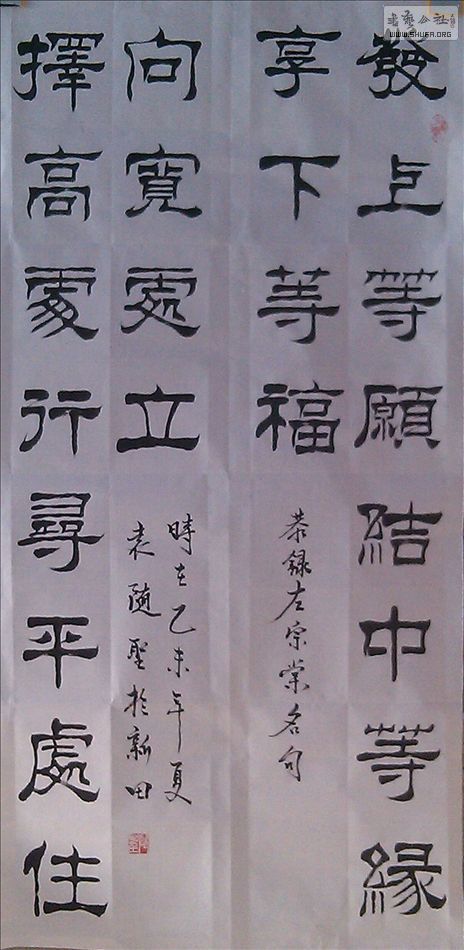 發上等願結中等緣
享下等福
恭録左宗棠名句
擇高處行尋平處住
向寬處立
時在乙未年夏
袁隨聖於新田
書藝公社
WWW.SHUFA.ORG